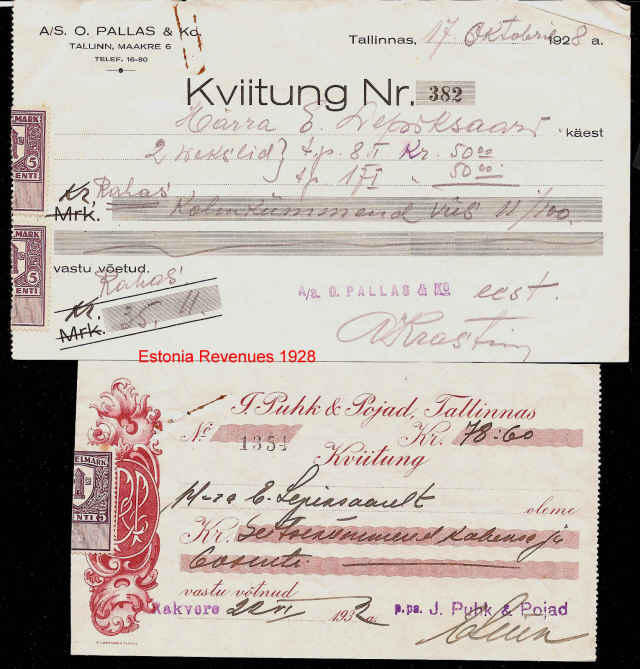 A/S. O. PALLAS & Ko.
TALLINN, MAAKRE 6
TELEF. 16-80
Tallinnas, 17. Oktobril 1928 a.
Kviitung Nr. 382
Härra E. käest
2 Wekslid } t.p. 8 II Kr. 50 00
t.p. 17 I " 50 00
Kr. Rahas
Mrk. Kolmkümmend viis 11/100
vastu võetud.
Rahas
Kr. 35. 11.
Mrk.
A/s. O. PALLAS & Ko eest.
MARK
5
SENTI
MARK
5
SENTI
Estonia Revenues 1928
J. Puhk & Pojad, Tallinnas
No 1354 Kr. 78:60
Kviitung
E. Lepiksaarelt
oleme
Kr. Seitsekümmend kaheksa ja
60 senti
vastu võtnud
Rakvere 22 VI 1932 a. p.pa. J. Puhk & Pojad
MARK
SENTI 5